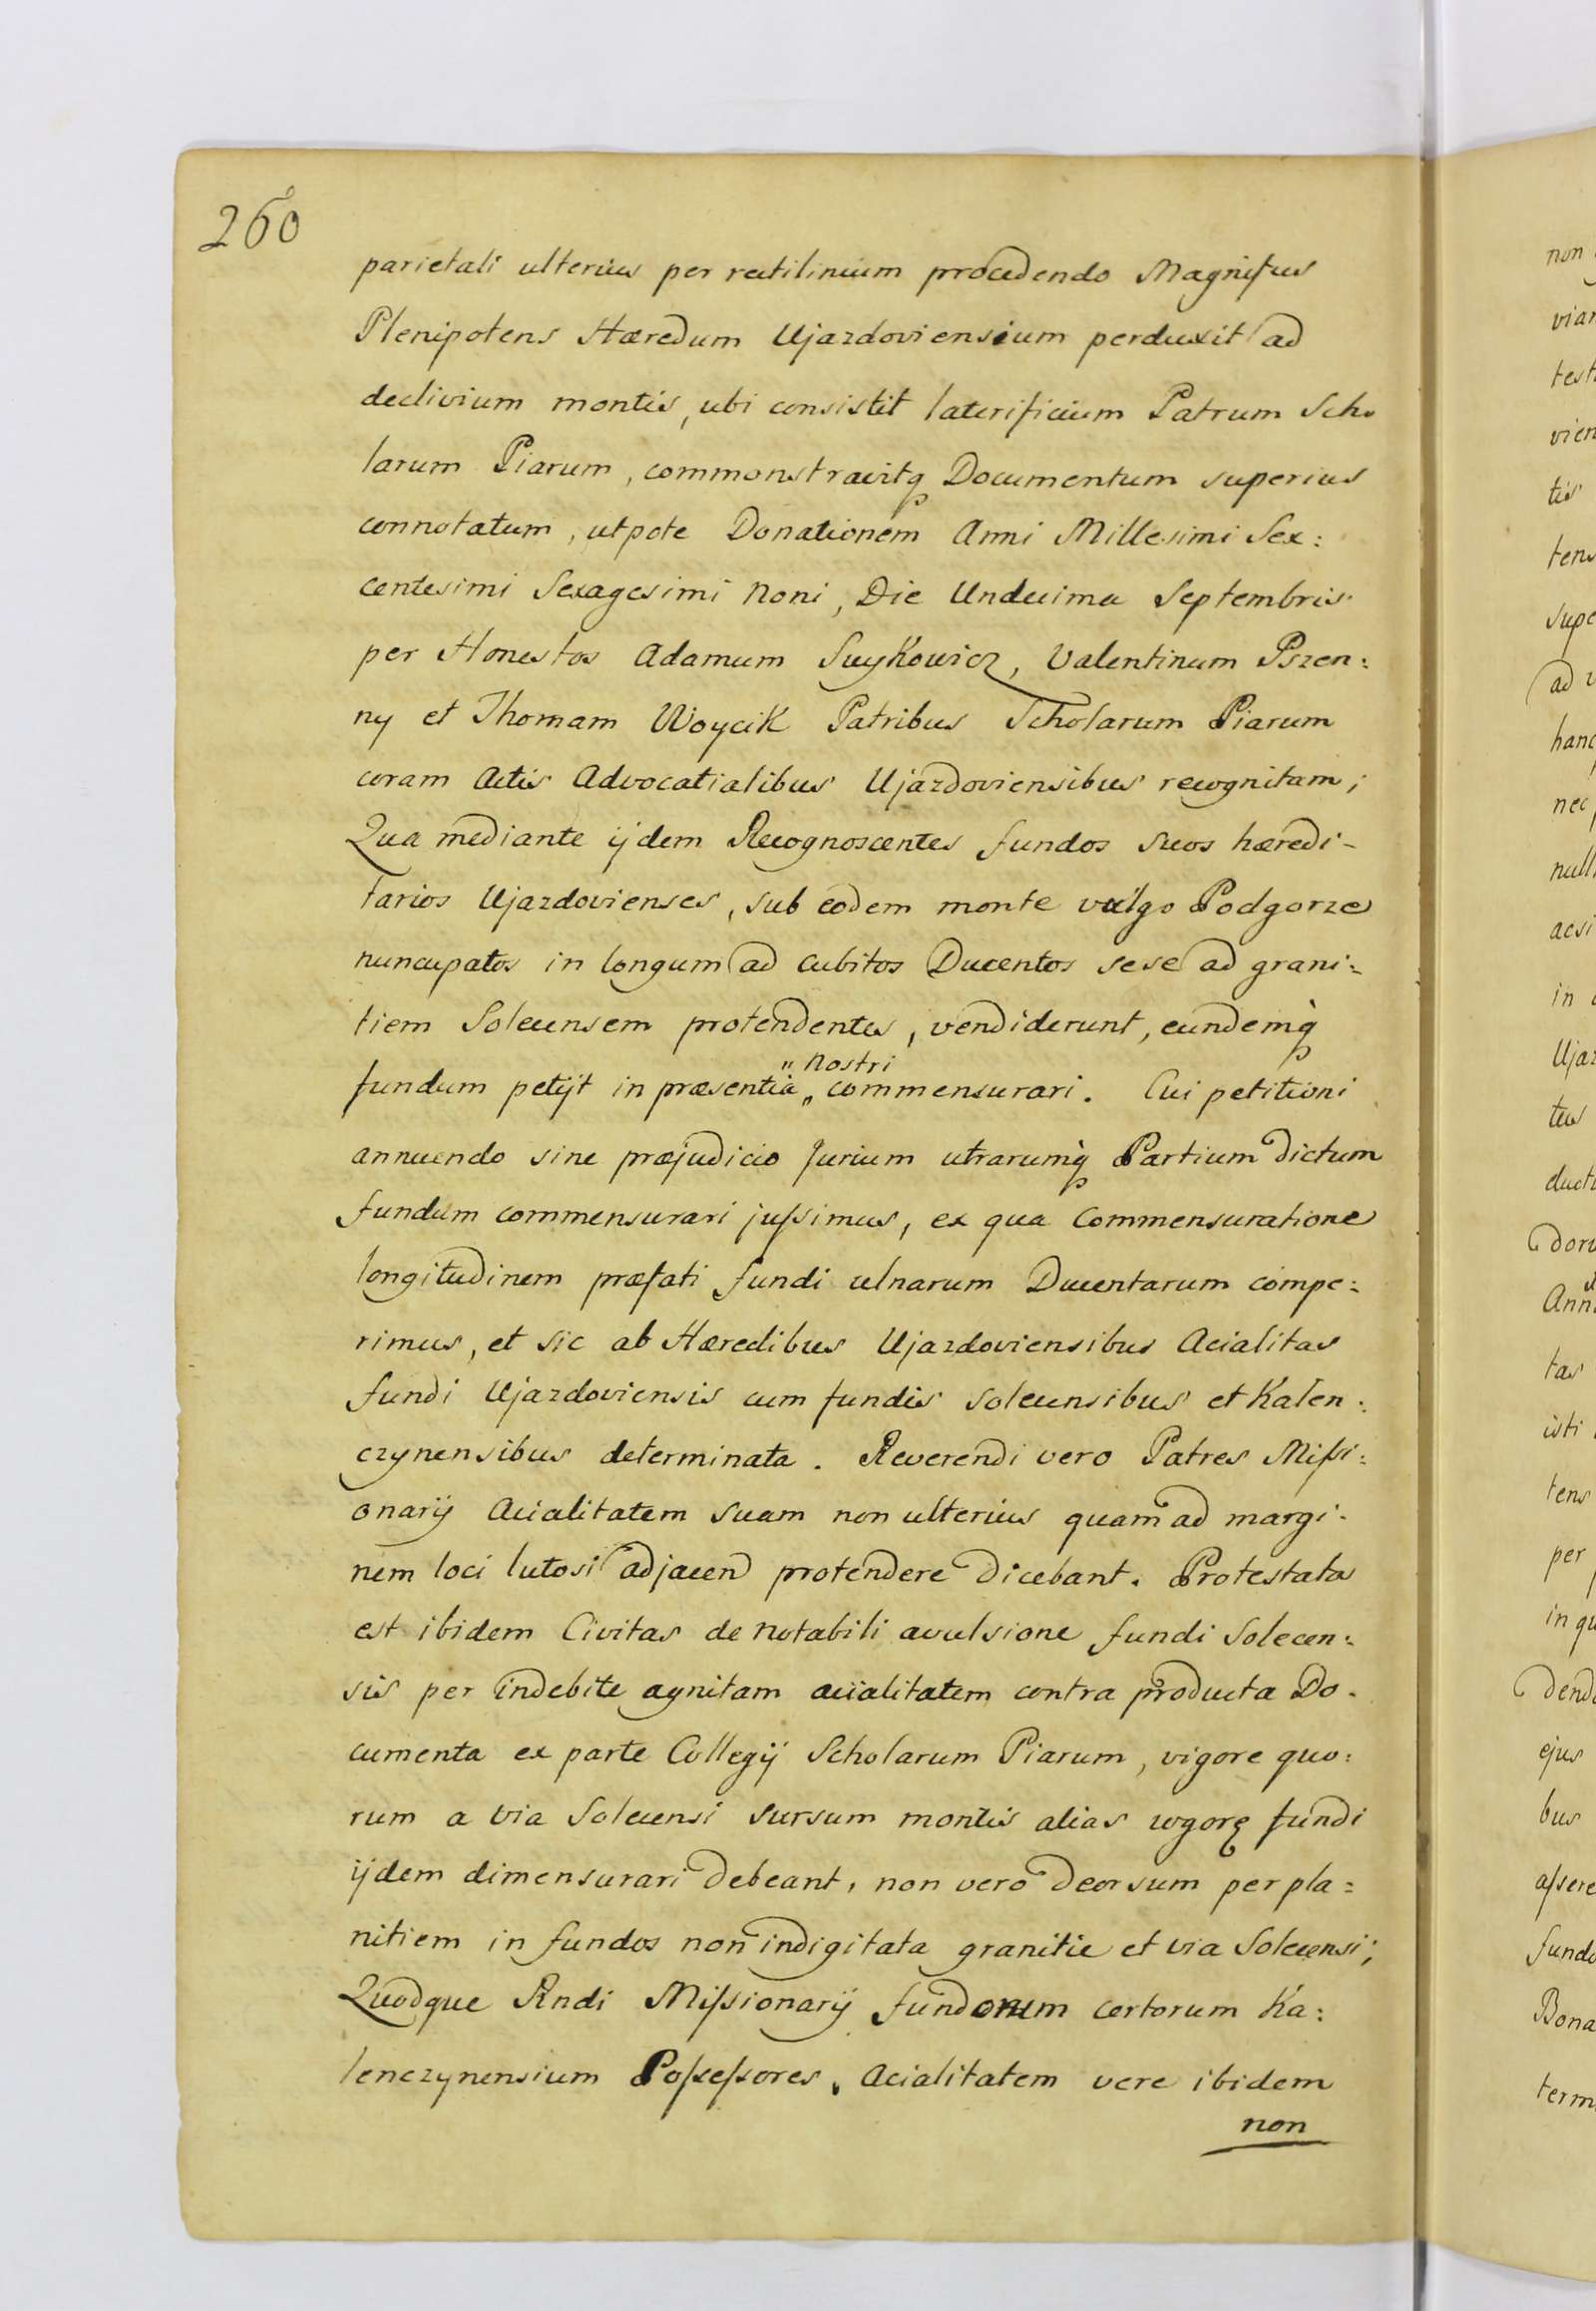 260
parietali ulterius per rectilinium procedendo Magnificus
Plenipotens Hæredum Ujazdoviensium perduxit ad
declivium montis, ubi consistit laterificium Patrum Scho
larum Piarum, commonstravitq Documentum superius
connotatum, utpote Donationem Anni Millesimi Sex:
centesimi Sexagesimi Noni, Die Undecima Septembris
per Honestos Adamum Suykowicz, Valentinum Pszen:
ny et Thomam Woycik Patribus Scholarum Piarum
coram Actis Advocatialibus Ujazdoviensibus recognitam;
Qua mediante ijdem Recognoscentes fundos suos hæredi-
tarios Ujazdovienses, sub eodem monte vulgo Podgorze
nuncupatos in longum ad cubitos Ducentos sese ad grani:
tiem Solecensem protendentes, vendiderunt, eundemq
" Nostri
fundum petijt in præsentia " commensurari. Cui petitioni
annuendo sine præjudicio Jurium utrarumq Partium dictum
fundum commensurari jussimus, ex qua Commensuratione
longitudinem præfati fundi ulnarum Ducentarum compe:
rimus, et sic ab Hæredibus Ujazdoviensibus Acialitas
fundi Ujazdoviensis cum fundis Solecensibus et Kalen:
czynensibus determinata. Reverendi vero Patres Missi:
onarij Acialitatem suam non ulterius quam ad margi:
nem loci lutosi adjacen protendere dicebant. Protestata
est ibidem Civitas de notabili avulsione fundi Solecen:
sis per indebite agnitam acialitatem contra producta Do.
cumenta ex parte Collegij Scholarum Piarum, vigore quo:
rum a via Solecensi sursum montis alias wgorę fundi
ijdem dimensurari debeant, non vero deorsum per pla:
nitiem in fundos non indigitata granitie et via Solecensi;
Quodque Rndi Missionarij fundorum certorum Ka:
lenczynensium Possessores, Acialitatem vere ibidem
non
non
viar
test
vien
tis
tens
supe
ad
hanc
nec
null
acsi
in
Ujaz
tus
duct
doru
Ann
tas
isti
tens
per
in qu
dend
ejus
bus
assere
fund
Bona
term